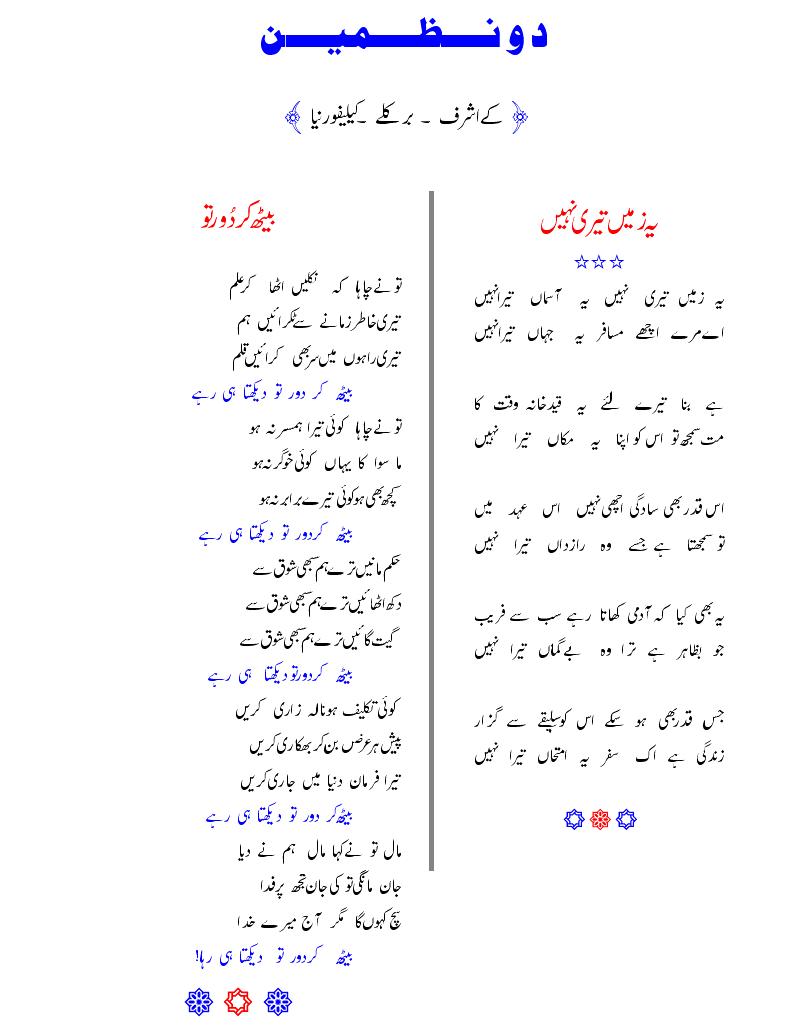 دو نظمیں
کے اشرف ۔ برکلے ۔ کیلیفورنیا
یہ زمیں تیری نہیں
☆☆☆
یہ زمیں تیری نہیں یہ آسماں تیرا نہیں
اے مرے اچھے مسافر یہ جہاں تیرا نہیں
ہے بنا تیرے لئے یہ قید خانہ وقت کا
مت سمجھ تو اس کو اپنا یہ مکاں تیرا نہیں
اس قدر بھی سادگی اچھی نہیں اس عہد میں
تو سمجھتا ہے جسے وہ رازداں تیرا نہیں
یہ بھی کیا کہ آدمی کھاتا رہے سب سے فریب
جو بظاہر ہے ترا وہ بے گماں تیرا نہیں
جس قدر بھی ہو سکے اس کو سلیقے سے گزار
زندگی ہے اک سفر یہ امتحاں تیرا نہیں
بیٹھ کر دُور تو
تو نے چاہا کہ نکلیں اٹھا کر علم
تیری خاطر زمانے سے ٹکرائیں ہم
تیری راہوں میں سر بھی کرائیں قلم
بیٹھ کر دور تو دیکھتا ہی رہے
تو نے چاہا کوئی تیرا ہمسر نہ ہو
ما سوا کا یہاں کوئی خوگر نہ ہو
کچھ بھی ہو کوئی تیرے برابر نہ ہو
بیٹھ کر دور تو دیکھتا ہی رہے
حکم مانیں ترے ہم سبھی شوق سے
دکھ اٹھائیں ترے ہم سبھی شوق سے
گیت گائیں ترے ہم سبھی شوق سے
بیٹھ کر دور تو دیکھتا ہی رہے
کوئی تکلیف ہو نالہ زاری کریں
پیش ہر عرض بن کر بھکاری کریں
تیرا فرمان دنیا میں جاری کریں
بیٹھ کر دور تو دیکھتا ہی رہے
مال تو نے کہا مال ہم نے دیا
جان مانگی تو کی جان تجھ پر فدا
سچ کہوں گا مگر آج میرے خدا
بیٹھ کر دور تو دیکھتا ہی رہا!